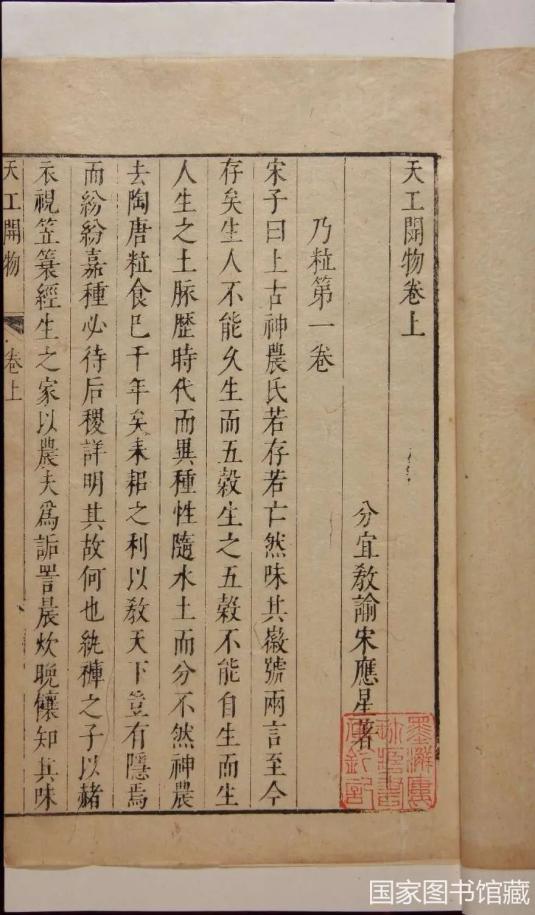 天工開物卷上
分宜教諭宋應星著
乃粒第一卷
宋子曰上古神農氏若存若亡然味其徽號兩言至今
存矣生人不能久生而五穀生之五穀不能自生而生
人生之土脉歷時代而異種性隨水土而分不然神農
去陶唐粒食已千年矣耒耜之利以教天下豈有隱焉
而紛紛嘉種必待后稷詳明其故何也紈褲之子以赭
衣視笠簑經生之家以農夫爲詬詈晨炊晚饟知其味
天工開物
卷上
国家图书馆藏